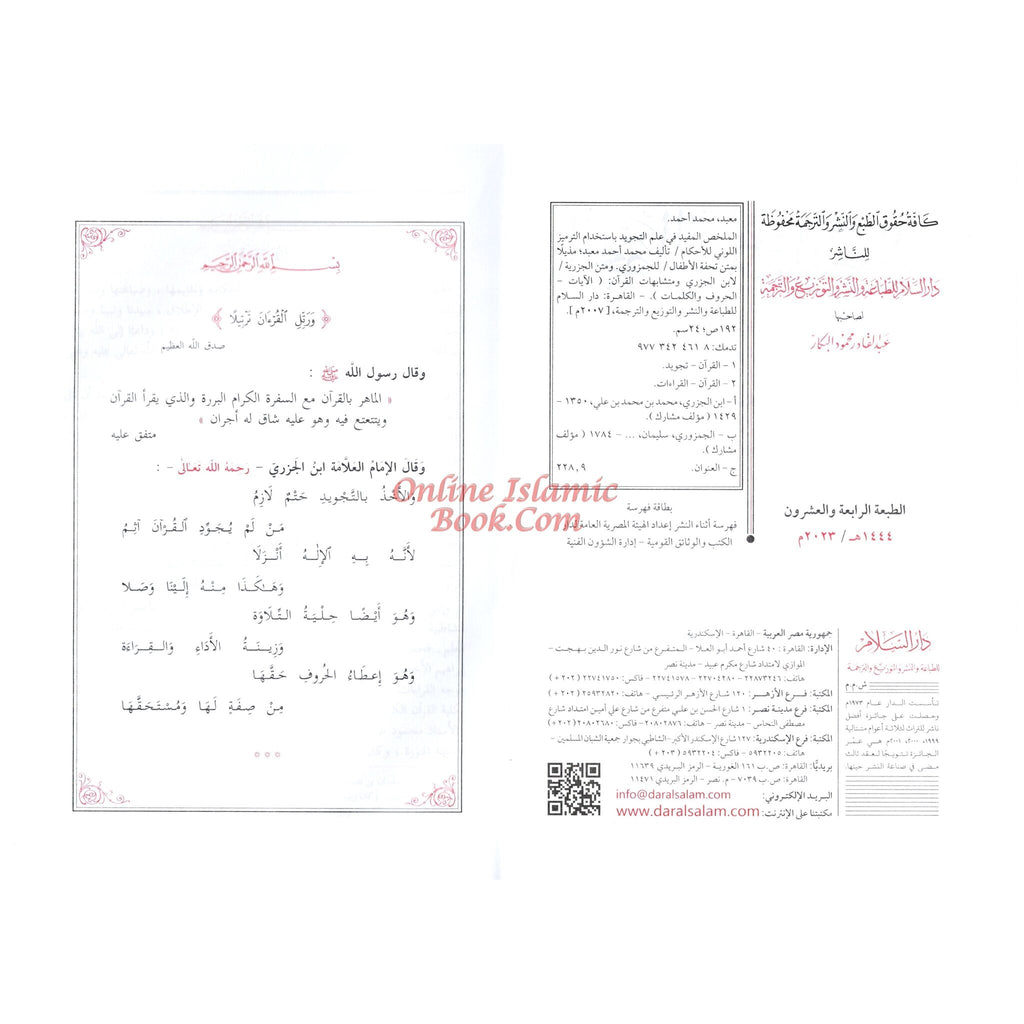 كافة حقوق الطبع والنشر والترجمة محفوظة
للناشر
دار السلام للطباعة والنشر والتوزيع والترجمة
لصاحبها
عبد القادر محمود البكار
الطبعة الرابعة والعشرون
١٤٤٤هـ / ٢٠٢٣م
معبد، محمد أحمد.
الملخص المفيد في علم التجويد باستخدام الترميز
اللوني للأحكام / تأليف محمد أحمد معبد؛ مذيلًا
بمتن تحفة الأطفال / للجمزوري. ومتن الجزرية /
لابن الجزري ومتشابهات القرآن: ( الآيات -
الحروف والكلمات ). - القاهرة: دار السلام
للطباعة والنشر والتوزيع والترجمة، [ ٢٠٠٧م ].
١٩٢ص؛ ٢٤سم.
تدمك: ٨ ٤٦١ ٣٤٢ ٩٧٧
١ - القرآن - تجويد.
٢ - القرآن - القراءات.
أ - ابن الجزري، محمد بن محمد بن علي، ١٣٥٠ -
١٤٢٩ ( مؤلف مشارك ).
ب - الجمزوري، سليمان، ... - ١٧٨٤ ( مؤلف
مشارك ).
ج - العنوان. ٢٢٨,٩
بطاقة فهرسة
فهرسة أثناء النشر إعداد الهيئة المصرية العامة لدار
الكتب والوثائق القومية - إدارة الشؤون الفنية
دار السلام
للطباعة والنشر والتوزيع والترجمة
ش.م.م
تأسست الدار عام ١٩٧٣م
وحصلت على جائزة أفضل
ناشر للتراث لثلاثة أعوام متتالية
١٩٩٩م، ٢٠٠٠م، ٢٠٠١م هي عشر
الجائزة تتويجًا لعقد ثالث
مضى في صناعة النشر حينها.
جمهورية مصر العربية - القاهرة - الإسكندرية
الإدارة: القاهرة : ٤٠ شارع أحمد أبو العلا - المتفرع من شارع نور الدين بهجت -
الموازي لامتداد شارع مكرم عبيد - مدينة نصر
هاتف: ٢٢٨٧٣٢٤٦ - ٢٢٧٠٤٢٨٠ - ٢٢٧٤١٥٧٨ - فاكس: ٢٢٧٤١٧٥٠ ( ٢٠٢ + )
المكتبة: فرع الأزهر: ١٢٠ شارع الأزهر الرئيسي - هاتف: ٢٥٩٣٢٨٢٠ ( ٢٠٢ + )
المكتبة: فرع مدينة نصر: ١ شارع الحسن بن علي متفرع من شارع علي أمين امتداد شارع
مصطفى النحاس - مدينة نصر - هاتف: ٢٠٨٠٢٨٧٦ - فاكس: ٢٠٨٠٢٦٨٠ ( ٢٠٢ + )
المكتبة: فرع الإسكندرية: ١٢٧ شارع الإسكندر الأكبر - الشاطبي بجوار جمعية الشبان المسلمين -
هاتف: ٥٩٣٢٢٠٥ - فاكس: ٥٩٣٢٢٠٤ ( ٢٠٣ + )
بريديًّا: القاهرة: ص.ب ١٦١ الغورية - الرمز البريدي ١١٦٣٩
القاهرة: ص.ب ٧٠٣٩ - م. نصر - الرمز البريدي ١١٤٧١
البريد الإلكتروني: info@daralsalam.com
مكتبتنا على الإنترنت: www.daralsalam.com
بسم الله الرحمن الرحيم
﴿ وَرَتِّلِ ٱلْقُرْءَانَ تَرْتِيلًا ﴾
صدق الله العظيم
وقال رسول اللَّه ﷺ :
« الماهر بالقرآن مع السفرة الكرام البررة والذي يقرأ القرآن
ويتتعتع فيه وهو عليه شاق له أجران »
متفق عليه
وَقَالَ الإمَامُ العلَّامَة ابنُ الجَزري - رحمهُ الله تعَالى - :
وَالأَخْذُ بالتَّجْويدِ حَتْمٌ لازِمُ
مَنْ لَمْ يُجَوِّدِ القُرْآنَ آثِمُ
لأَنَّهُ بِهِ الإلٰهُ أَنْزَلَا
وَهَـٰكَذَا مِنْهُ إلَيْنَا وَصَلا
وَهُوَ أَيْضًا حِلْيَةُ التِّلَاوَةِ
وَزِينَةُ الأَدَاءِ وَالقِرَاءَةِ
وَهُوَ إعْطَاءُ الحُروفِ حَقَّهَا
مِنْ صِفَةٍ لَهَا وَمُسْتَحَقَّهَا
* * *
Online Islamic
Book.Com